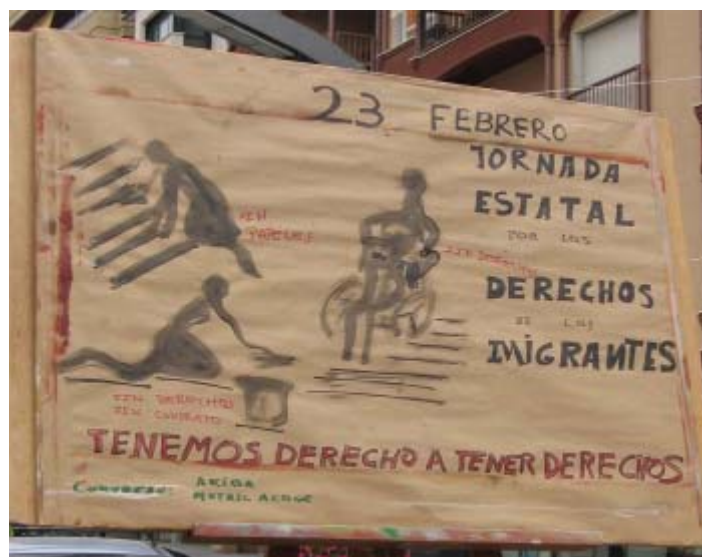 23 FEBRERO
JORNADA
ESTATAL
POR LOS
DERECHOS
DE LOS
MIGRANTES
SIN
PAPELES
SIN DERECHOS
SIN DERECHOS
SIN CONTRATO
TENEMOS DERECHO A TENER DERECHOS
CONVOCAN: 
MOTRIL ACOGE